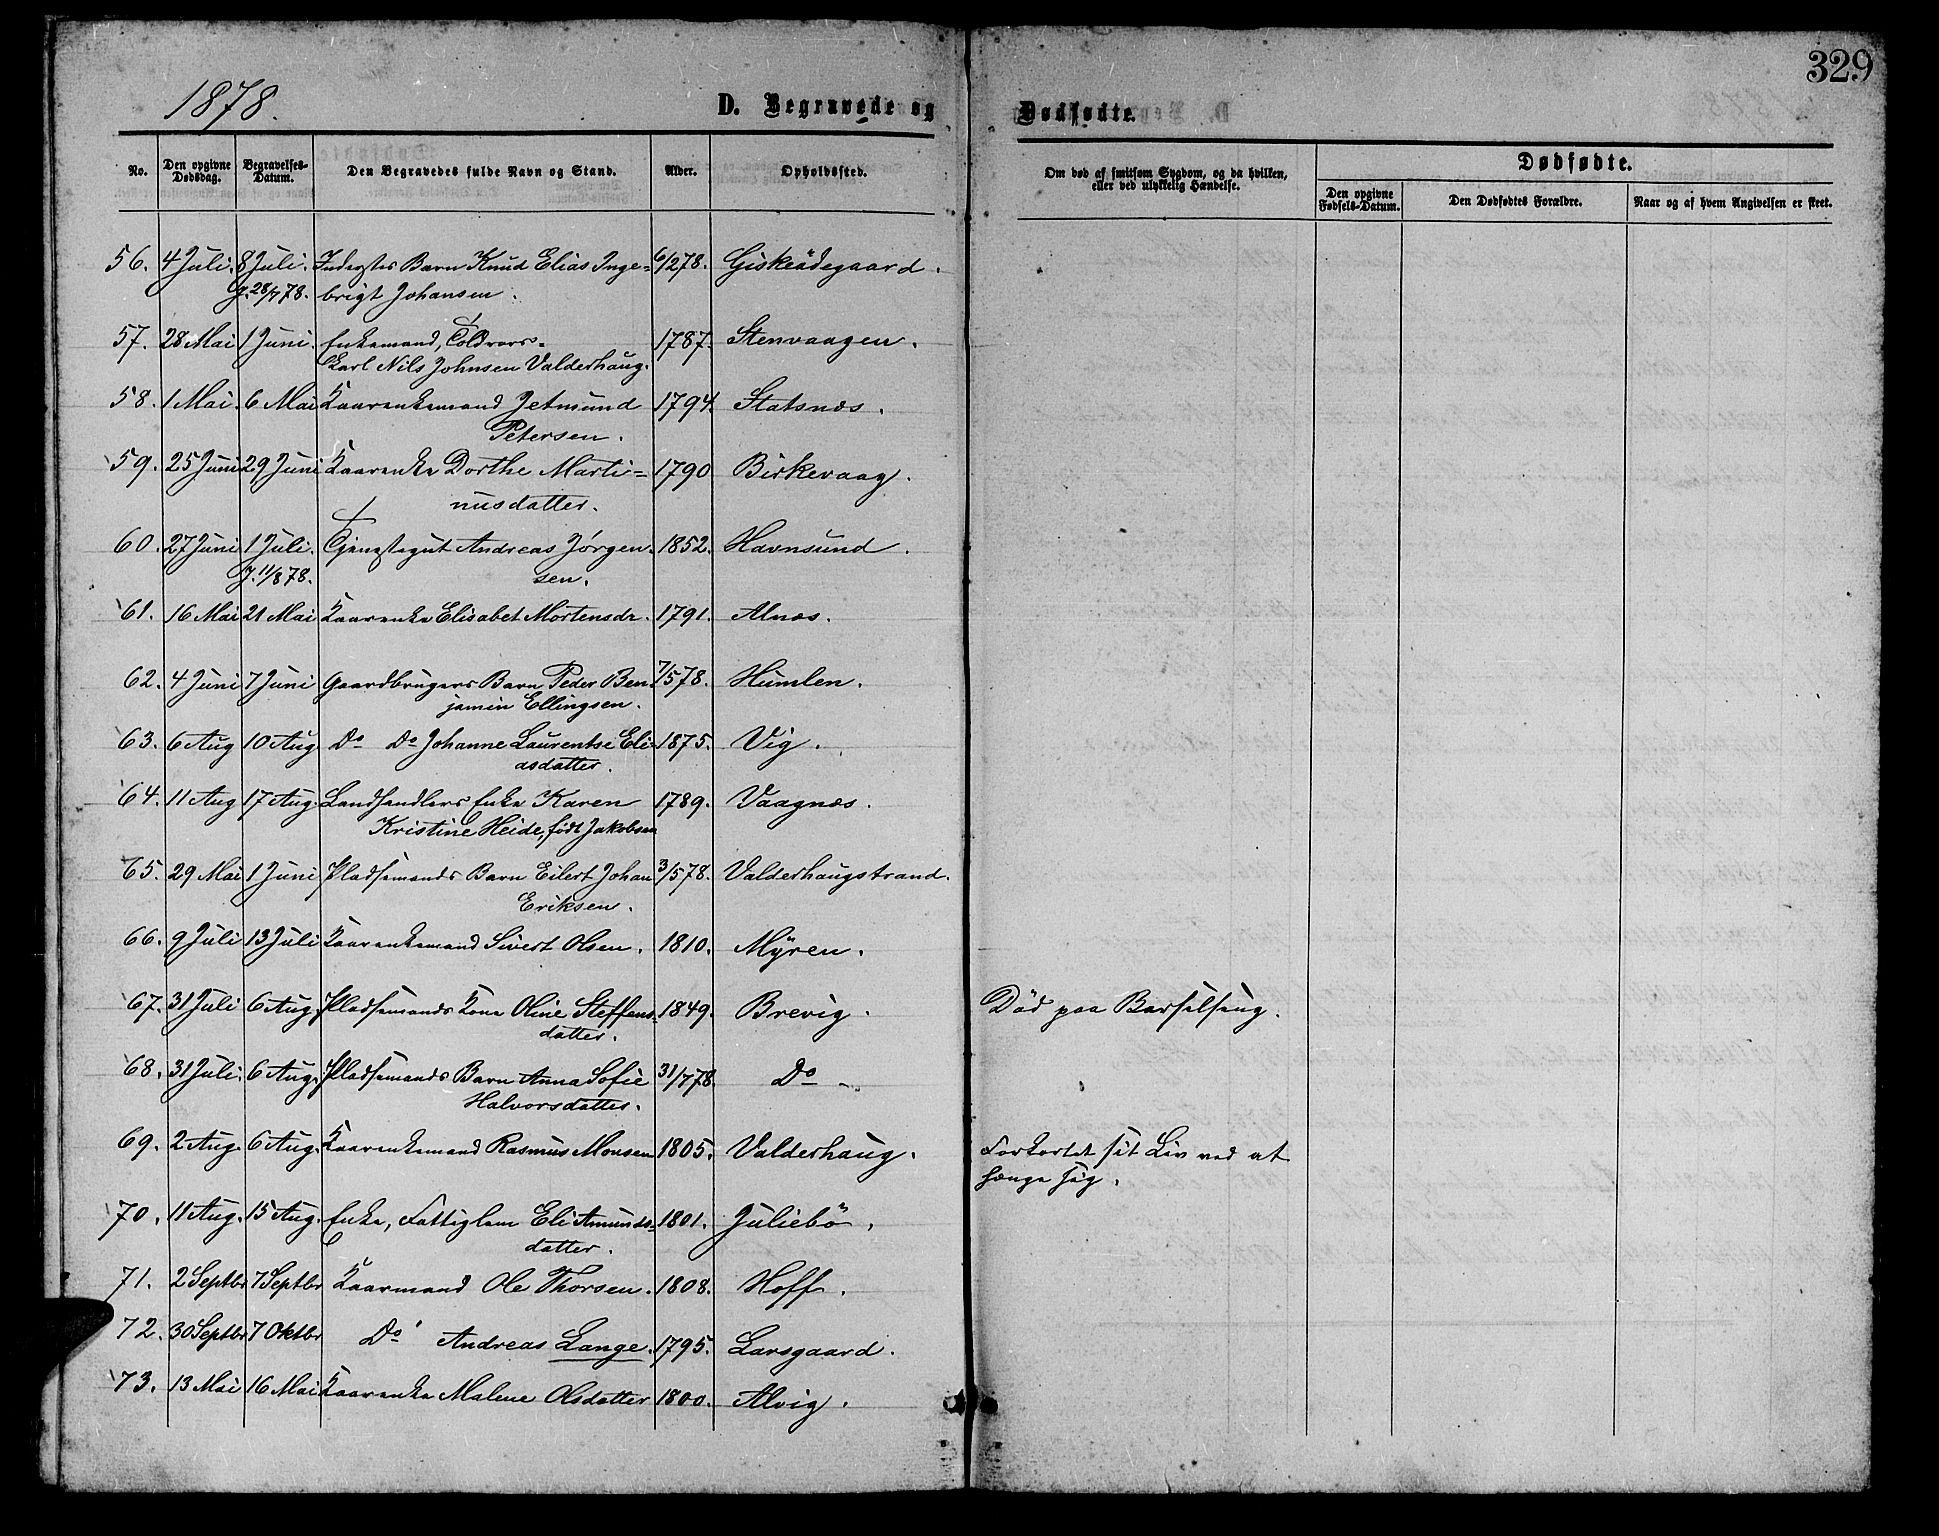 329
1878.
D. Begravede og Dødfødte.
No. Den opgivne Dødsdag. Begravelses-Datum. Den Begravedes fulde Navn og Stand. Alder. Opholdssted. Om død af smitsom Sygdom, og da hvilken, eller ved ulykkelig Hændelse. Dødfødte.
Den opgivne Fødsels-Datum. Den Dødfødtes Forældre. Naar og af hvem Angivelsen er skeet.
56. 4 Juli. 8 Juli. Inderstes Barn Knud Elias Inge= 6/2 78. Giskeödegaard.
J. 28/7 78. brigt Johansen.
57. 28 Mai 1 Juni. Enkemand, Toldrors- 1787. Stenvaagen.
karl Nils Johnsen Valderhaug.
58. 1 Mai. 6 Mai Kaarenkemand Jetmund 1794. Statsnæs.
Petersen.
59. 25 Juni 29 Juni Kaarenke Dorthe Marti= 1790 Birkevaag.
nusdatter.
60. 27 Juni 1 Juli. Tjenestegut Andreas Jörgen- 1852. Havnsund.
J. 11/8 78. sen.
61. 16 Mai 21 Mai Kaarenke Elisabet Mortensdr. 1791. Alnæs.
62. 4 Juni 7 Juni Gaardbrugers Barn Peder Ben- 7/5 78. Humlen.
jamin Ellingsen.
63. 6 Aug 10 Aug. Do Do Johanne Laurentse Eli- 1875. Vig.
asdatter.
64. 11 Aug 17 Aug. Landhandlers Enke Karen 1789. Vaagnæs.
Kristine Heide, födt Jakobsen
65. 29 Mai 1 Juni Pladsemands Barn Eilert Johan 3/5 78. Valderhaugstrand.
Eriksen.
66. 9 Juli 13 Juli Kaarenkemand Sivert Olsen. 1810. Myren.
67. 31 Juli 6 Aug. Pladsemands Kone Oline Steffens- 1849. Brevig. Död paa Barselseng.
datter.
68. 31 Juli. 6 Aug. Pladsemands Barn Anna Sofie 31/7 78 Do -
Halvorsdatter.
69. 2 Aug. 6 Aug. Kaarenkemand Rasmus Monsen 1805. Valderhaug. Forkortet sit Liv ved at
hænge sig.
70. 11 Aug. 15 Aug. Enke, Fattiglem Eli Amunds- 1801. Juliebö.
datter.
71. 2 Septbr 7 Septbr Kaarmand Ole Thorsen. 1808. Hoff.
72. 30 Septbr 7 Oktbr Do Andreas Lange. 1795. Larsgaard.
73. 13 Mai 16 Mai Kaarenke Malene Olsdatter 1800. Alvig.